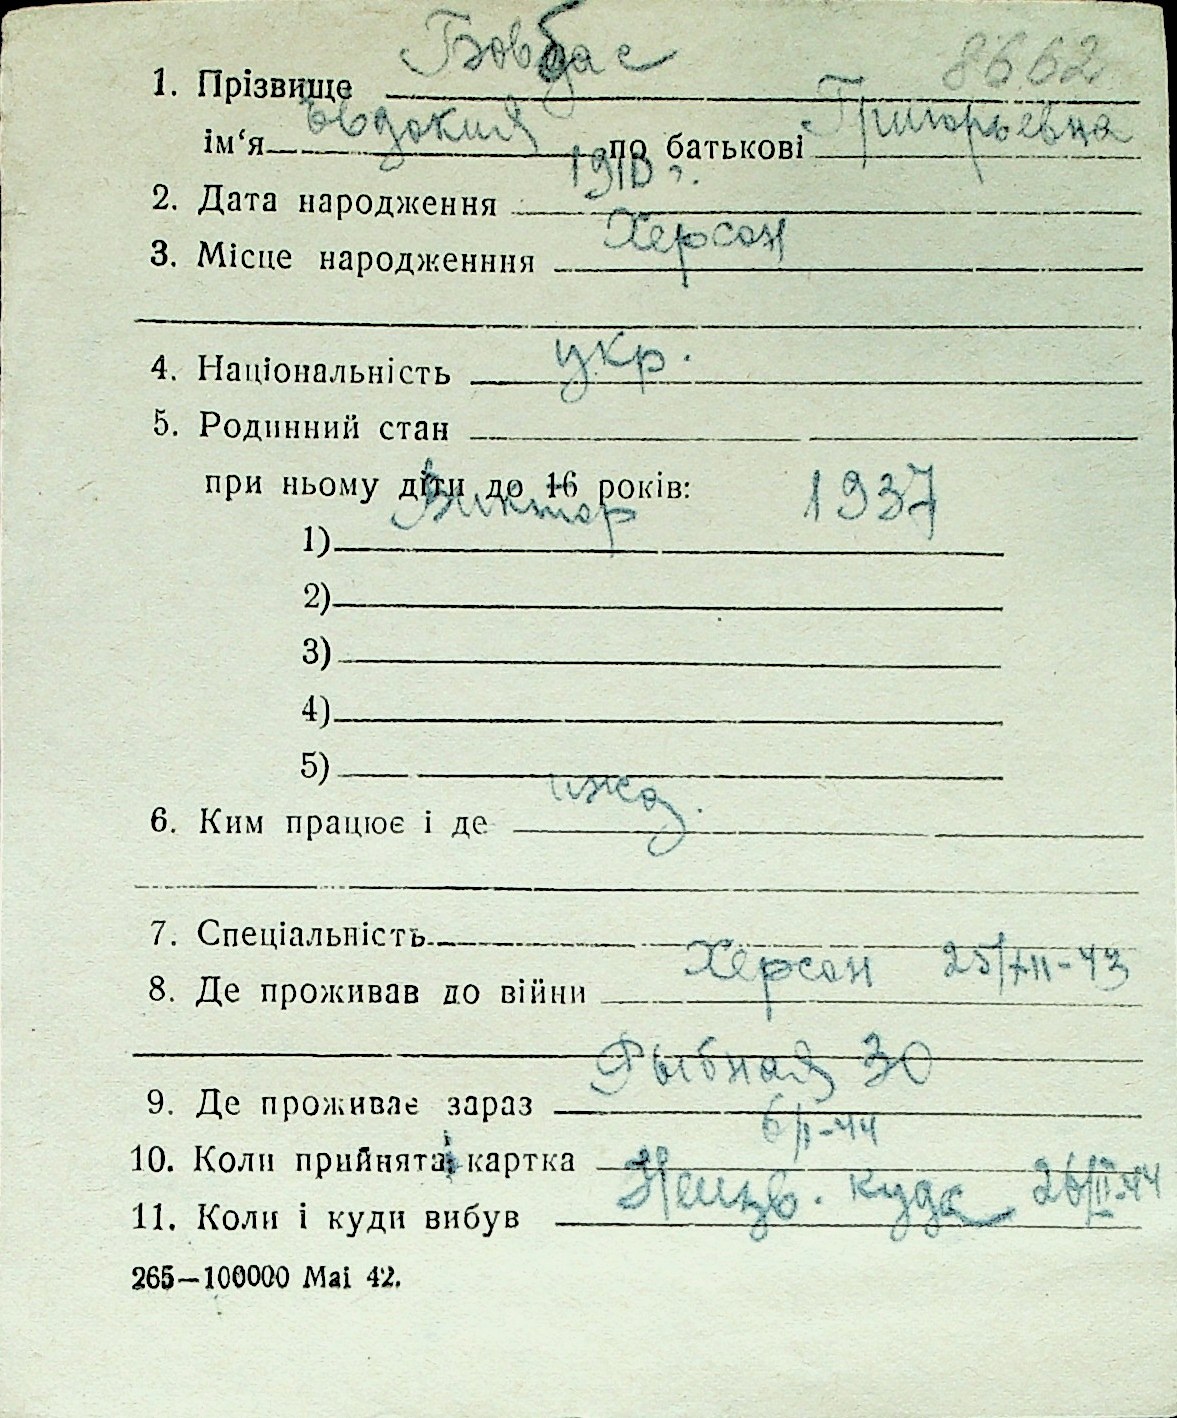 8662
1. Прізвище Бовбас
ім‘я Евдокия по батькові Григорьевна
2. Дата народження 1910 г.
3. Місце народженння Херсон
4. Національність укр.
5. Родинний стан
при ньому діти до 16 років:
1) Виктор 1937
2)
3)
4)
5)
6. Ким працює і де ижд.
7. Спеціальність
8. Де проживав до війни Херсон 25/XII-43
9. Де проживає зараз Рыбная 30
10. Коли прийнята картка 6/II-44
11. Коли і куди вибув Неизв. куда 26/II-44
265—100000 Маі 42.